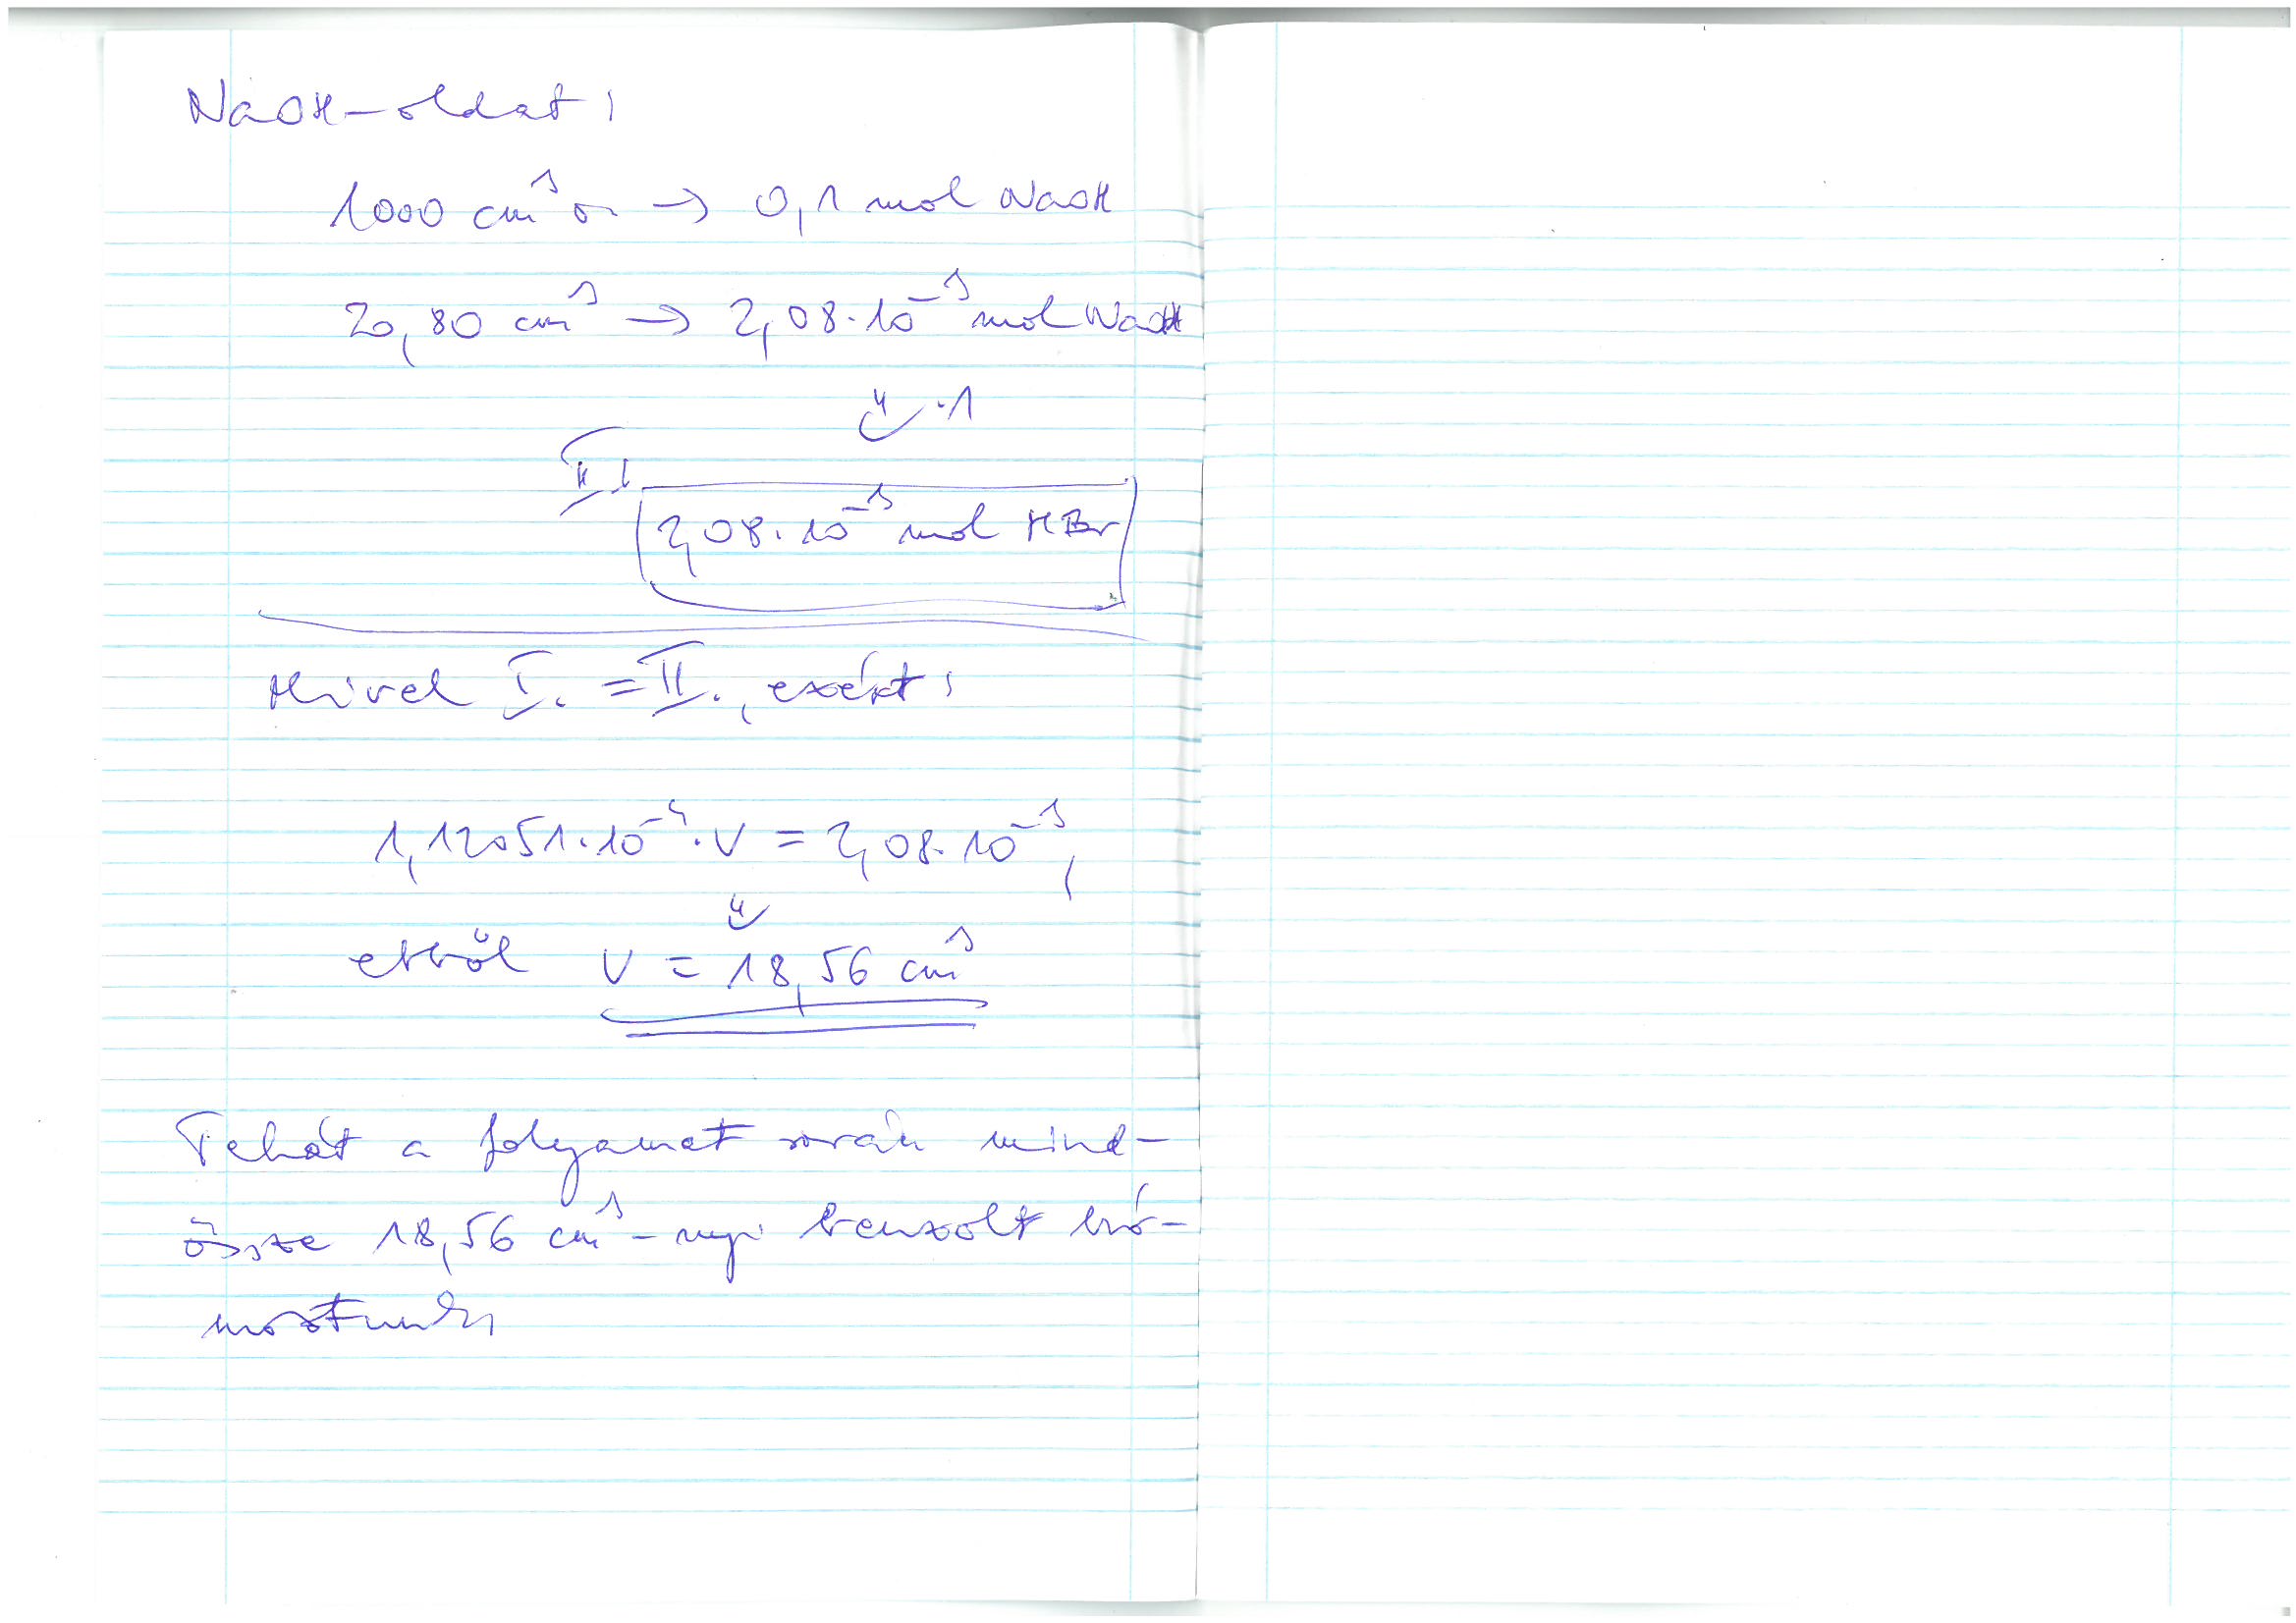 NaOH-oldat:
1000 cm³ o. → 0,1 mol NaOH
20,80 cm³ → 2,08·10⁻³ mol NaOH
⇓ ·1
II.
2,08·10⁻³ mol HBr
Mivel I. = II., ezért:
1,12051·10⁻⁴·V = 2,08·10⁻³,
⇓
ebből V = 18,56 cm³
Tehát a folyamat során mind-
össze 18,56 cm³-nyi benzolt bró-
moztunk,